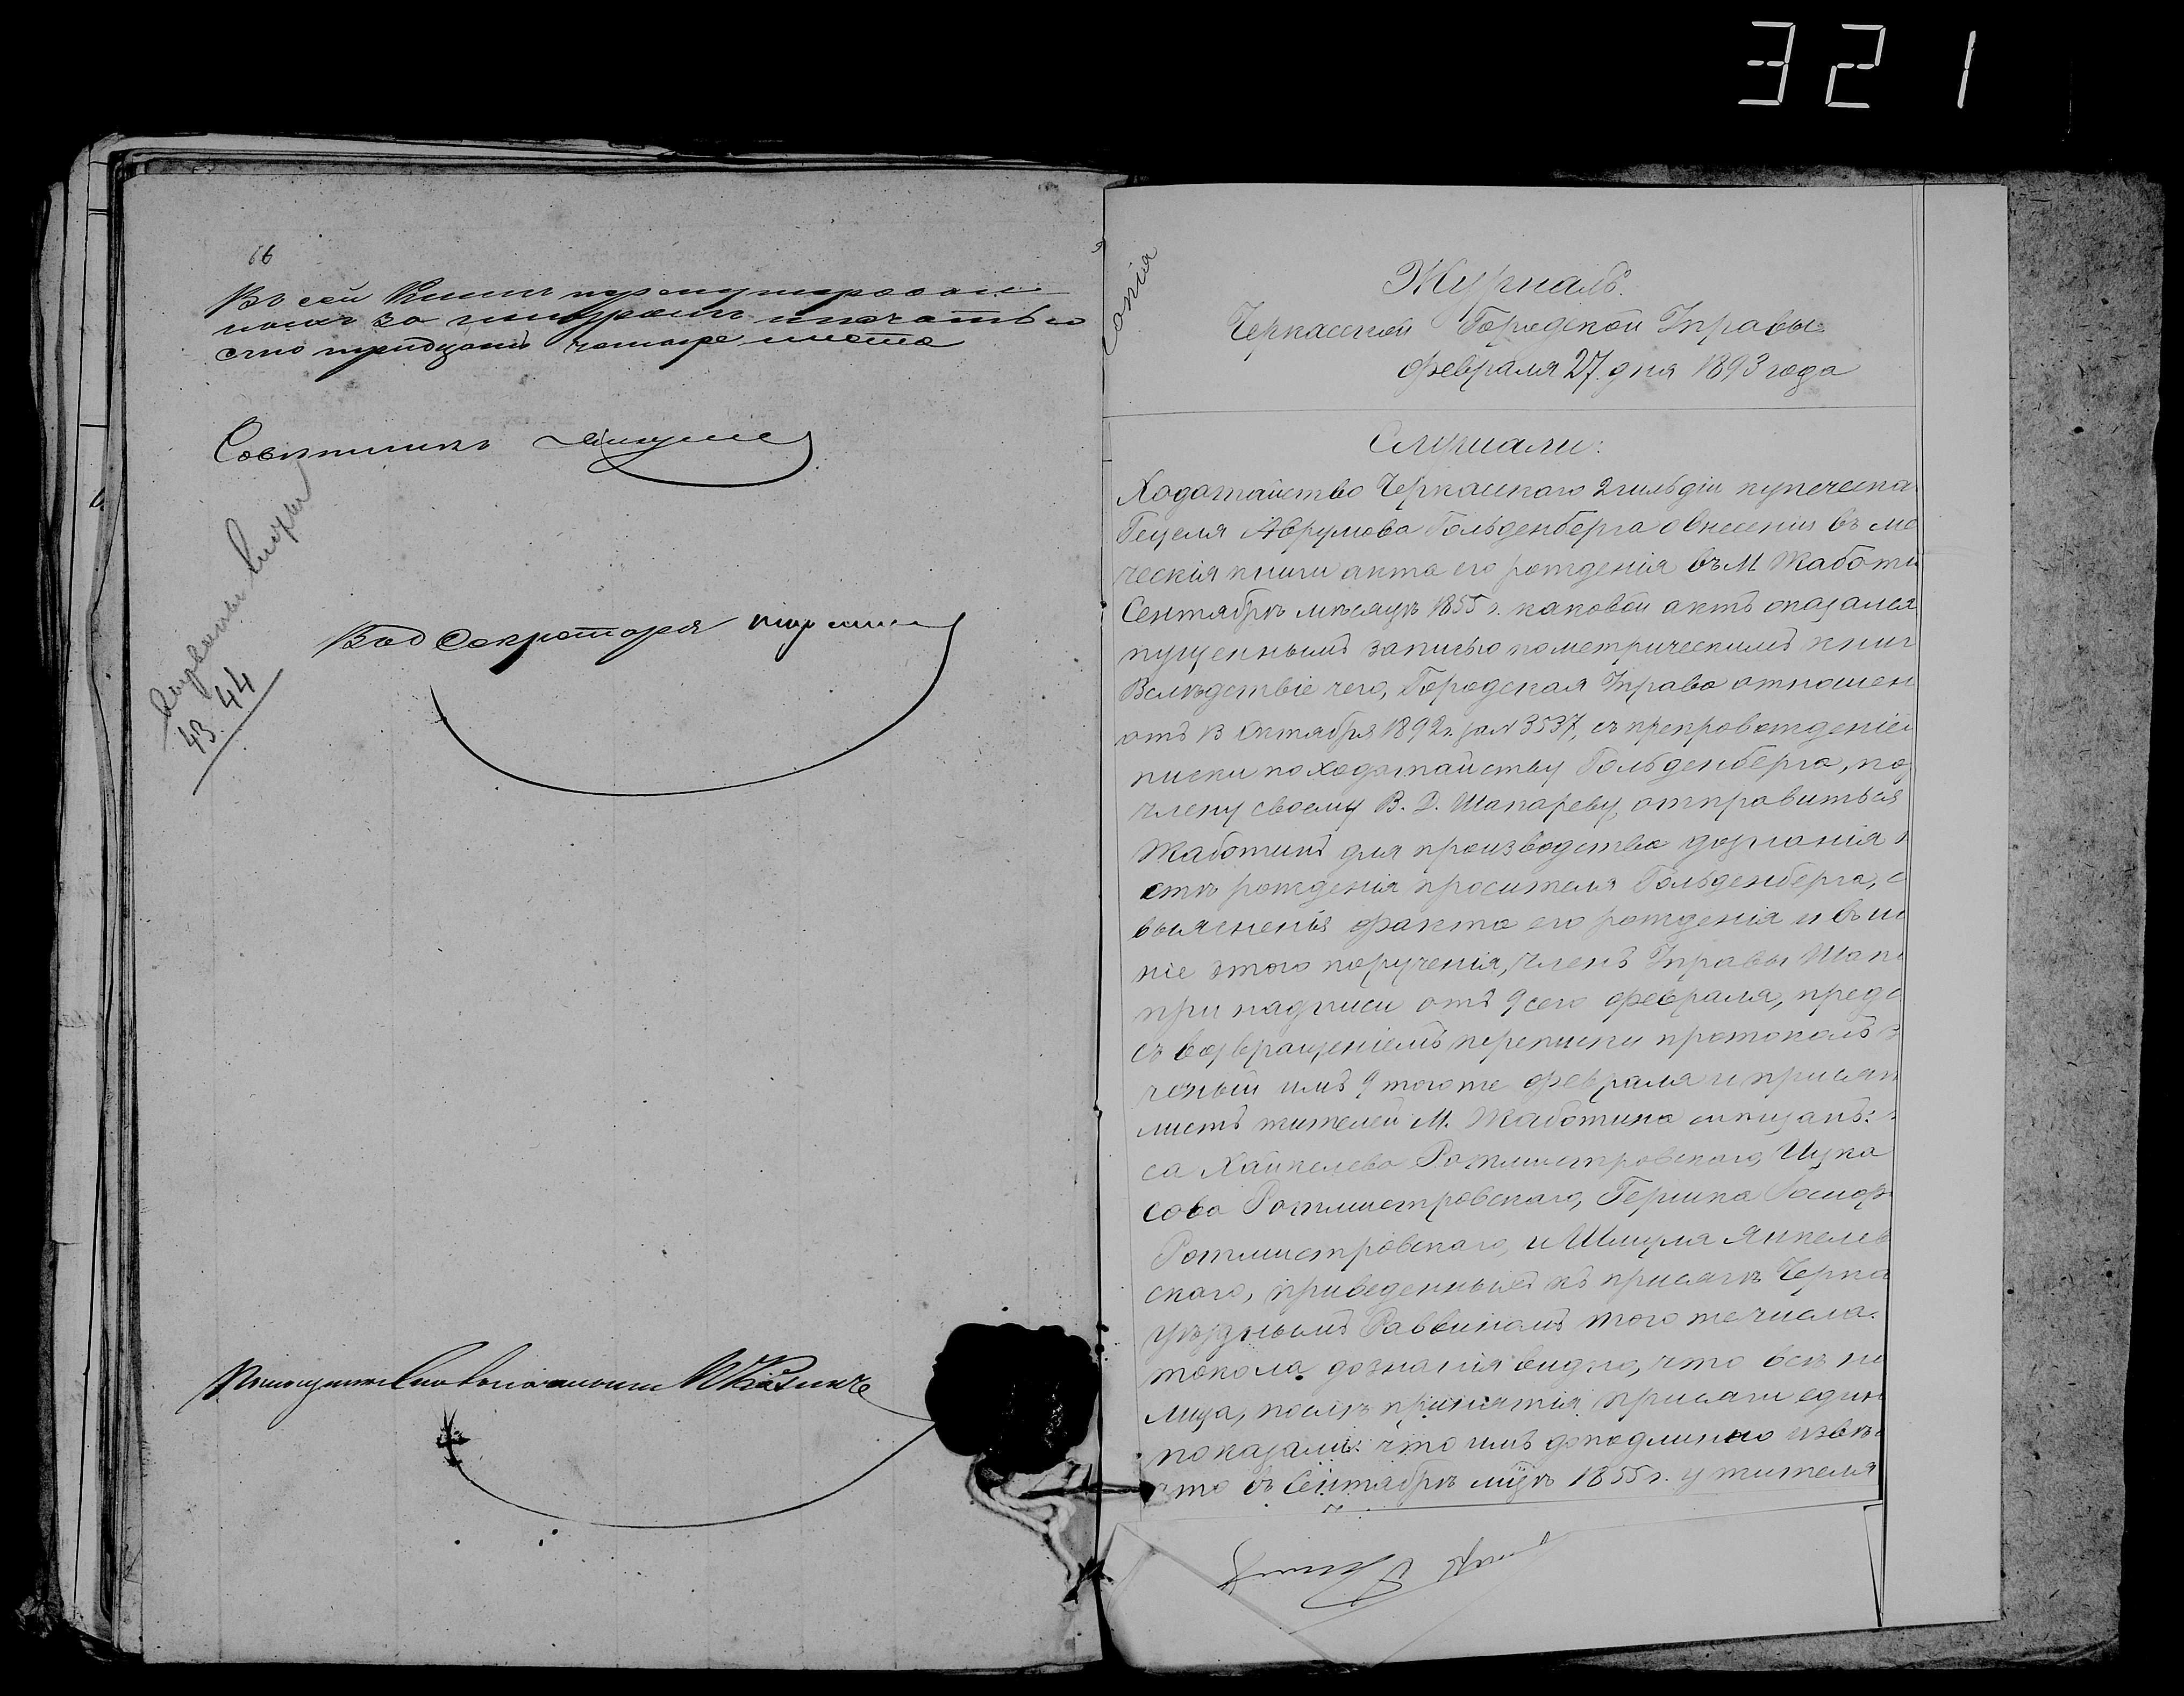 321
66
Въ сей Книгѣ пронумерован
сто тридцать четыре листа
Совѣтникъ
Секретаря
43. 44
копія
Журналъ
Черкасской Городской Управы
февраля 27 дня 1893 года
Слушали:
Ходатайство Черкасскаго 2 гильдіи купеческа
Гецеля Аврумова Гольденберга о внесеніи въ ме
ческія книги акта его рожденія въ М. Жаботи
Сентябрѣ мѣсяцѣ 1855 г. каковой актъ оказался
пущеннымъ записью по метрическимъ книг
Вслѣдствіе чего, Городская Управа отношен
отъ 13 Октября 1892 г. за № 3537, съ препровожденіем
писки по ходатайству Гольденберга, по
члену своему В. Д. Шапареву, отправиться
Жаботинъ для производства дознанія
стѣ рожденія просителя Гольденберга, с
выясненья факта его рожденія и въ ис
ніе этого порученія, Членъ Управы Шапа
при надписи отъ 9 сего февраля, предс
съ возвращеніемъ переписки протоколъ
ченый имъ 9 того же февраля и присяж
листъ жителей М. Жаботина мѣщанъ:
са Хаикелева Ротмистровскаго, Ицка
сова Ротмистровскаго, Гершка
Ротмистровскаго, и Шмуля Янкелев
скаго, приведенныхъ къ присягѣ Черка
уѣзднымъ Раввиномъ того же числа.
токола дознанія видно, что всѣ по
лица, послѣ принятія присяги един
показали: что имъ доподлинно извѣ
что въ Сентябрѣ мцѣ 1855 г. у жителя